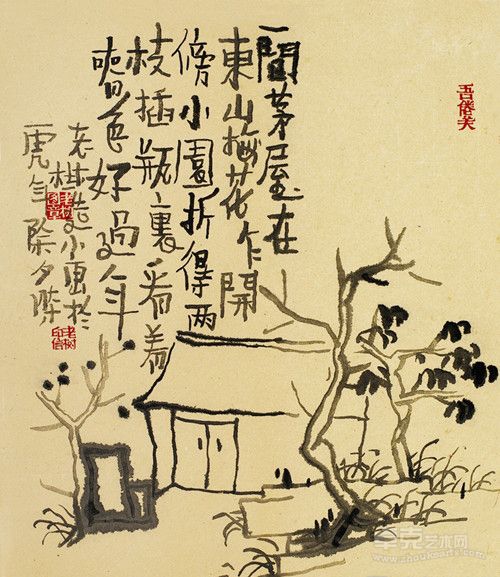 吾倦矣
一間茅屋在
東山梅花乍開
傍小園折得兩
枝插瓶裏看着
色好過年
老樹造小画於
虎年除夕際
卓克艺术网
www.zhuokearts.com